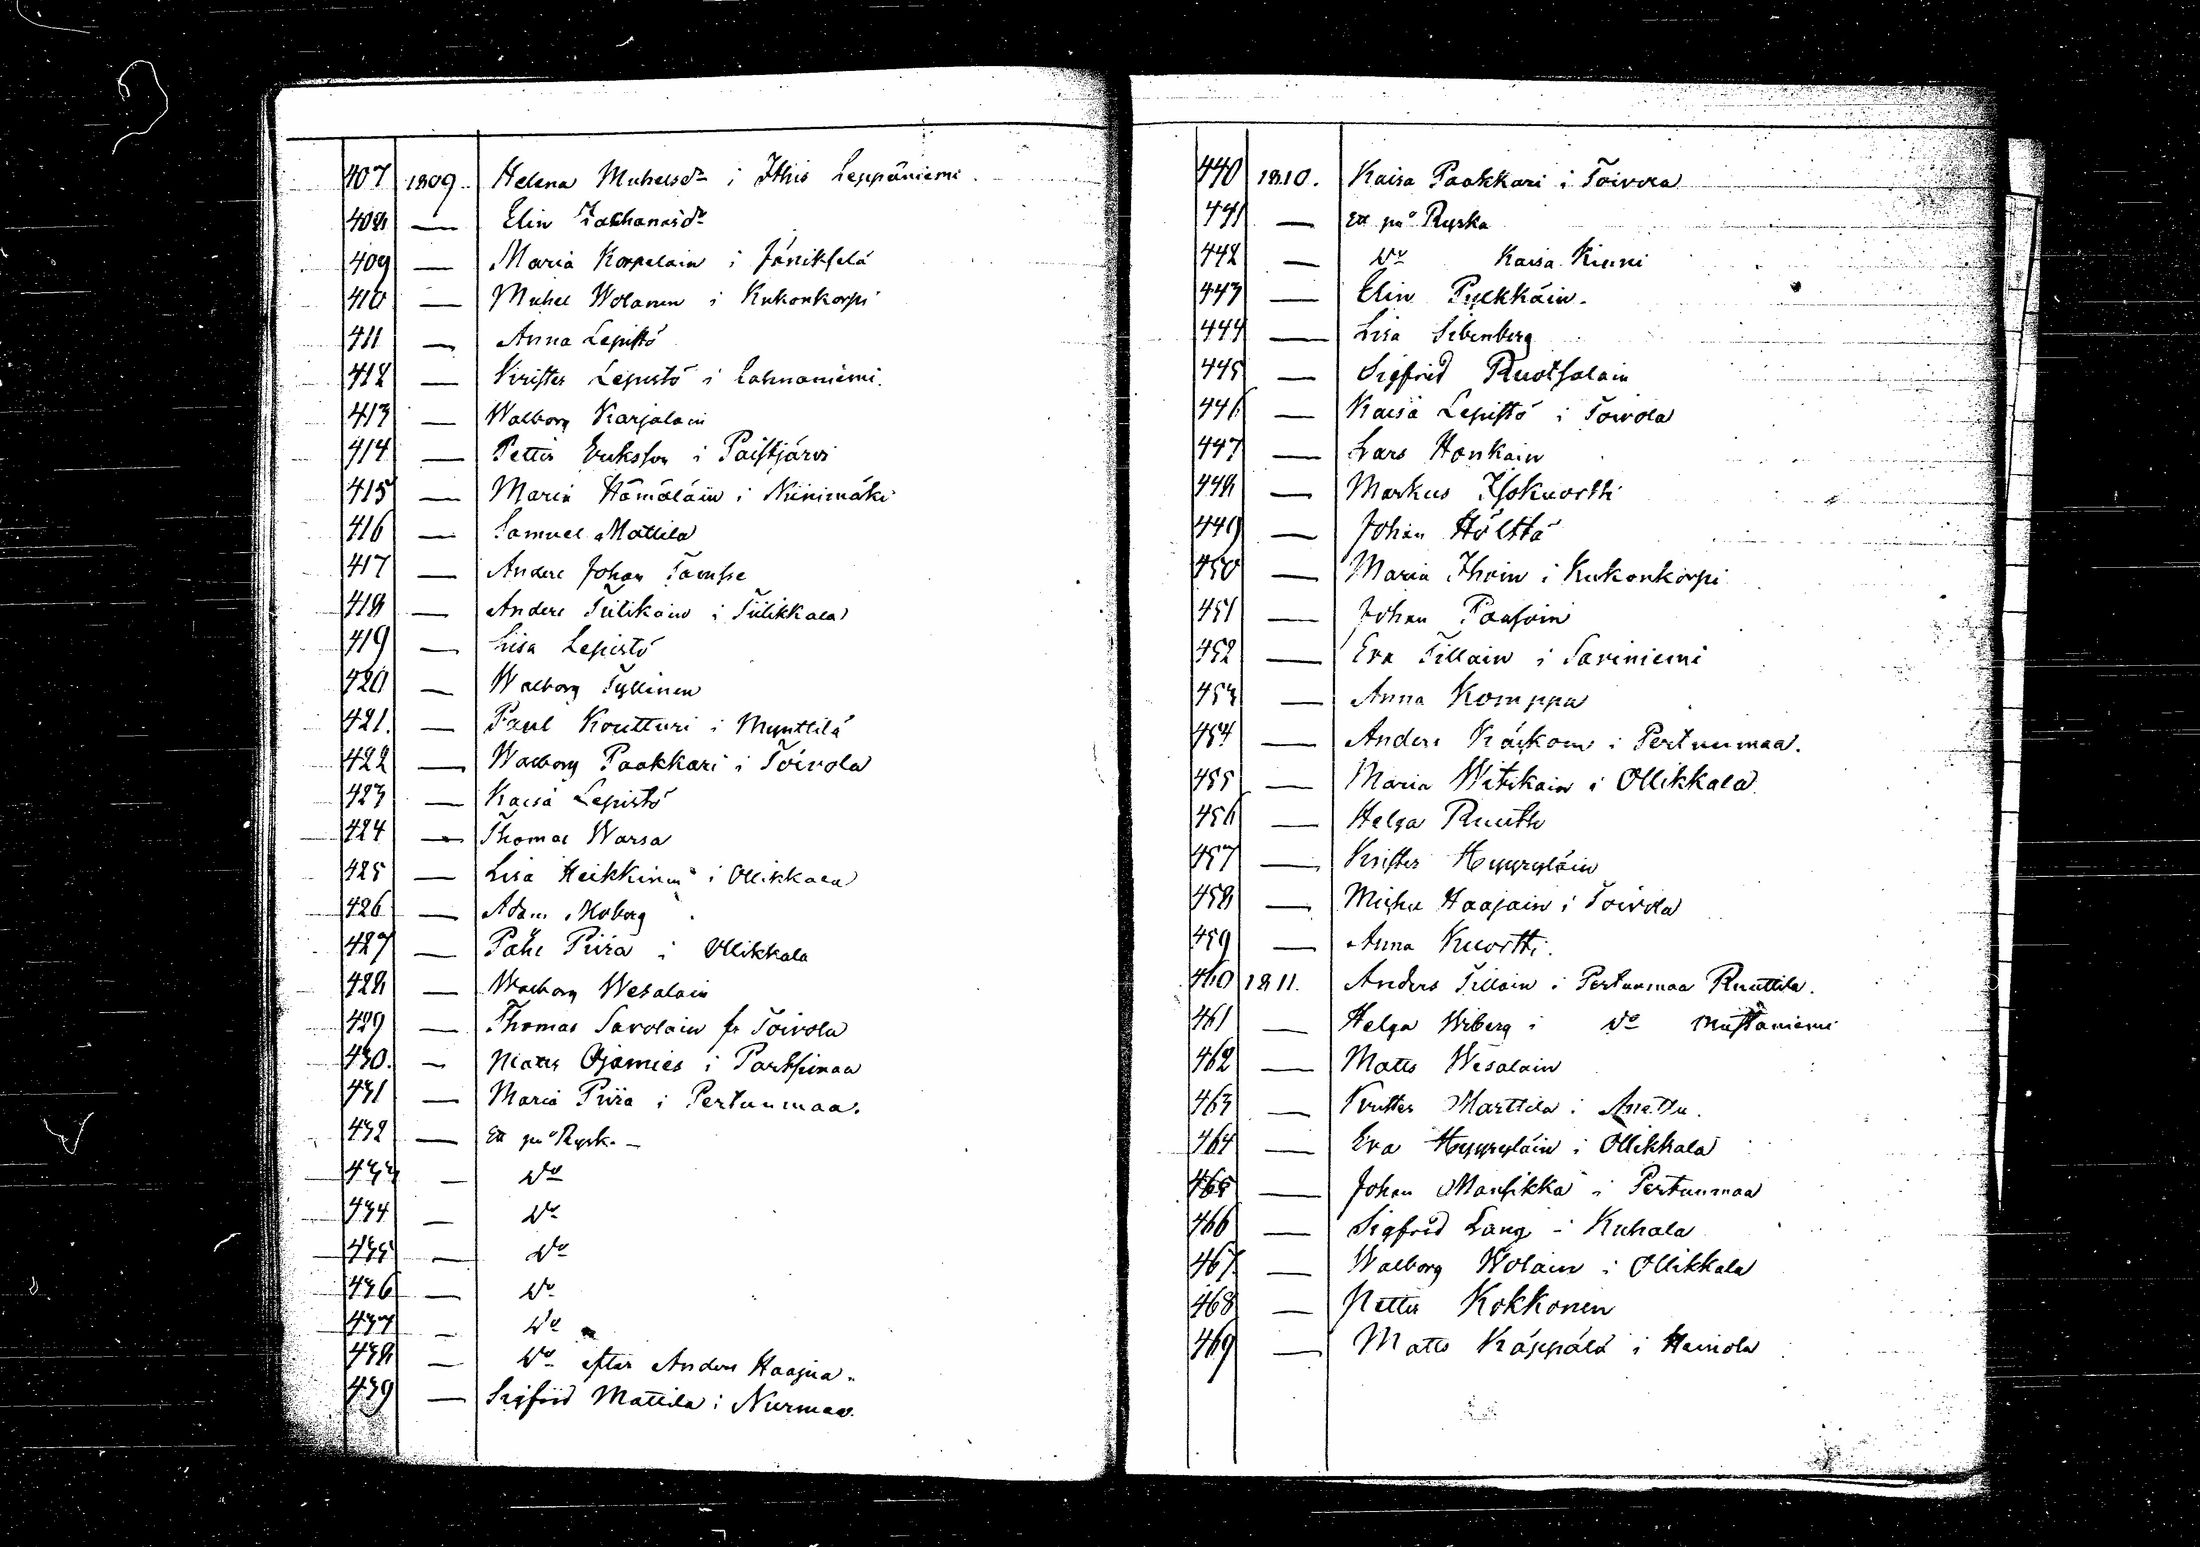 407 1809. Helena Michelsdr i Ithis Leppäniemi.
408 — Elin Zakhariasdr
409 — Maria Korpelain i Jäniksela
410 — Michel Wolanen i Kukonkorpi
411 — Anna Lepistö
412 — Krister Lepistö i Lahnaniemi.
413 — Walborg Karjalain
414 — Petter Eriksson i Paistjärvi
415 — Maria Hämäläin i Niinimäki
416 — Samuel Mattila
417 — Anders Johan
418 — Anders Tiilikain i Tiilikkala
419 — Lisa Lepistö
420 — Walborg Tyllinen
421. — Paul Koutturi i Mynttilä
422 — Walborg Paakkari i Toivola
423 — Kaisa Lepistö
424 — Thomas Warsa
425 — Lisa Heikkinen i Ollikkala
426 — Adam Moberg
427 — Påhl Piira i Ollikkala
428 — Walborg Wesalain
429 — Thomas Savolain fr Toivola
430. — Matts Ojamies i Partsimaa
431 — Maria Piira i Pertunmaa.
432 — Ett på Ryska —
433 — Do
434 — Do
435 — Do
436 — Do
437 — Do
438 — Do efter Anders Haajia.
439 — Sigfrid Mattila i Nurmaa.
440 1810. Kaisa Paakkari i Toivola
441 — Ett på Ryska
442 — Do Kaisa Kinni
443 — Elin Pylkkäin.
444 — Lisa Sibenberg
445 — Sigfrid Ruotsalain
446 — Kaisa Lepistö i Toivola
447 — Lars Honkain
448 — Markus Isokuortti
449 — Johan Hölttä
450 — Maria Ihoin i Kukonkorpi
451 — Johan Paasoin
452 — Eva Tillain i Saviniemi
453 — Anna Komppa
454 — Anders i Pertunmaa.
455 — Maria Witikain i Ollikkala.
456 — Helga Ruuth
457 — Krister Hyyryläin
458 — Michel Haajain i Toivola
459 — Anna Kuortti.
460 1811. Anders Tillain i Pertunmaa Ruuttila.
461 — Helga Wiberg i Do Mustaniemi
462 — Matts Wesalain
463 — Krister Marttila i Anettu.
464 — Eva Hyyryläin i Ollikkala
465 — Johan Mansikka i Pertunmaa
466 — Sigfrid Lang i Kuhala
467. — Walborg Wolain i Ollikkala
468 — Petter Kokkonen
469 — Matts Käppälä i Heinola